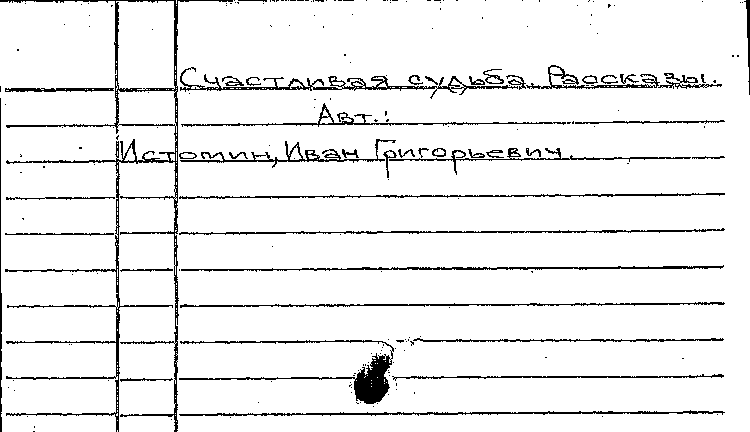 Счастливая судьба. Рассказы.
Авт.:
Истомин, Иван Григорьевич.